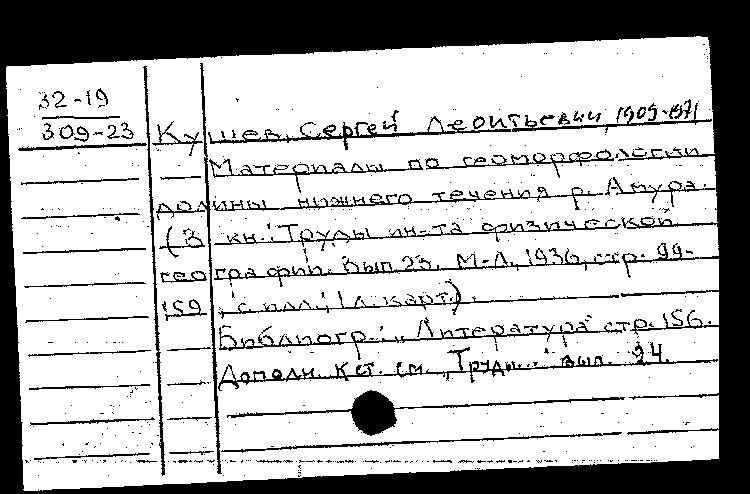 32-19
309-23
Кушев, Сергей Леонтьевич, 1909-1971
Материалы по геоморфологии
долины нижнего течения р. Амура.
(В кн.: Труды ин-та физической
географии. Вып. 23. М-Л., 1936, стр. 99-
159, с илл.; 1 л. карт.).
Библиогр.: "Литература" стр. 156.
Дополн. к ст. см. "Труды..." вып. 24.